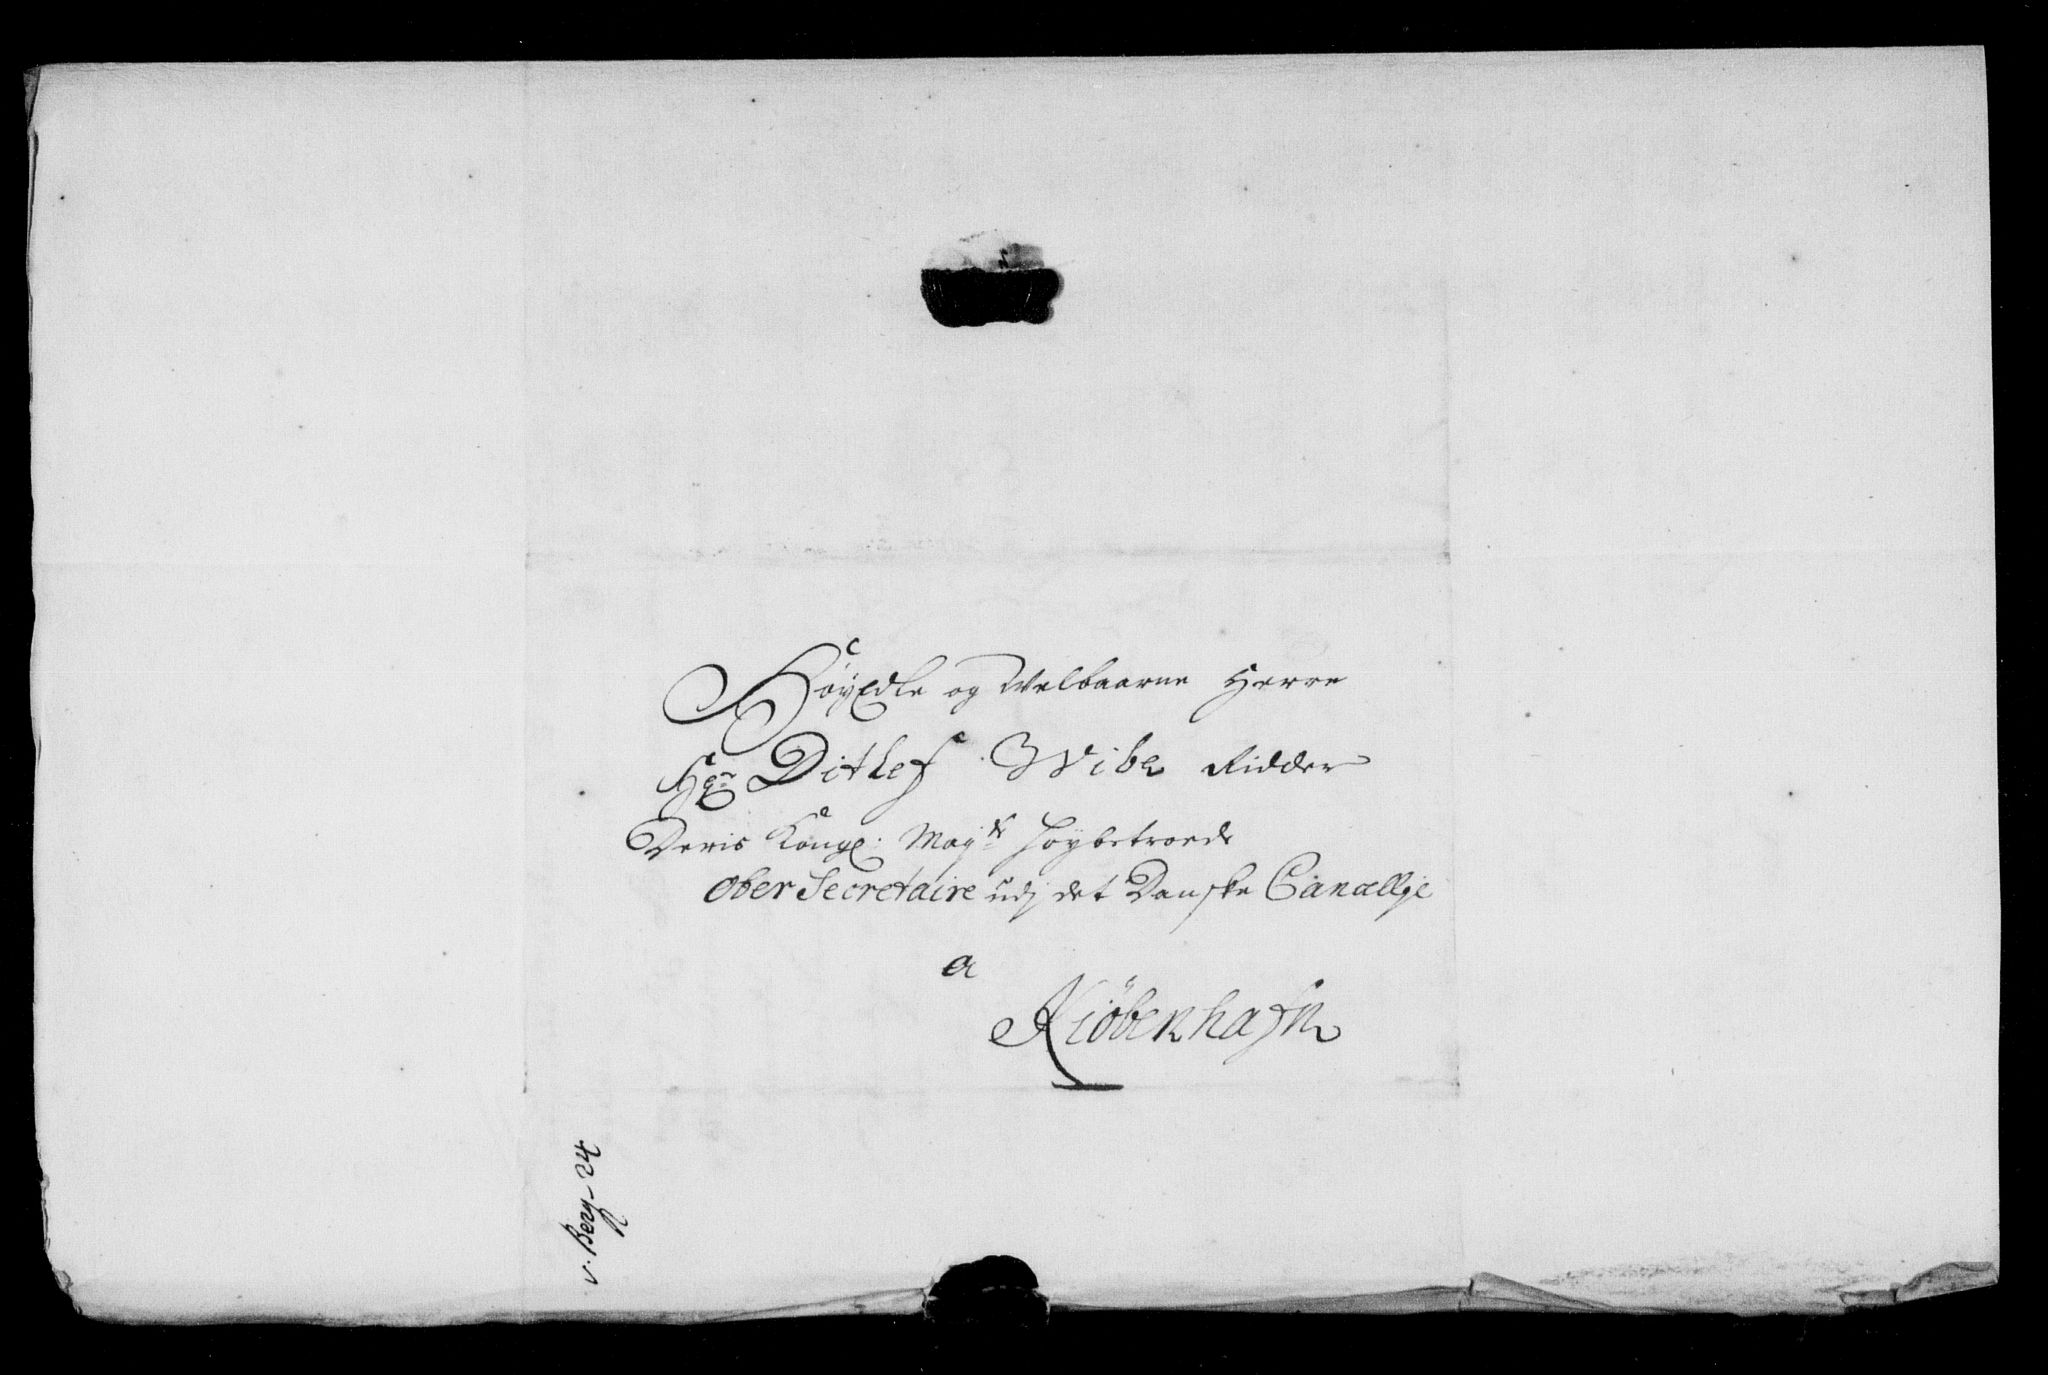 HöyEdle og Welbaarne Herre
Hr: Ditlef Wibe Ridder
Deris Kongl: Mayts höybetroede
Ober Secretaire udj det Danske Cancellje
a
Kiöbenhafn
v. Berg. 24